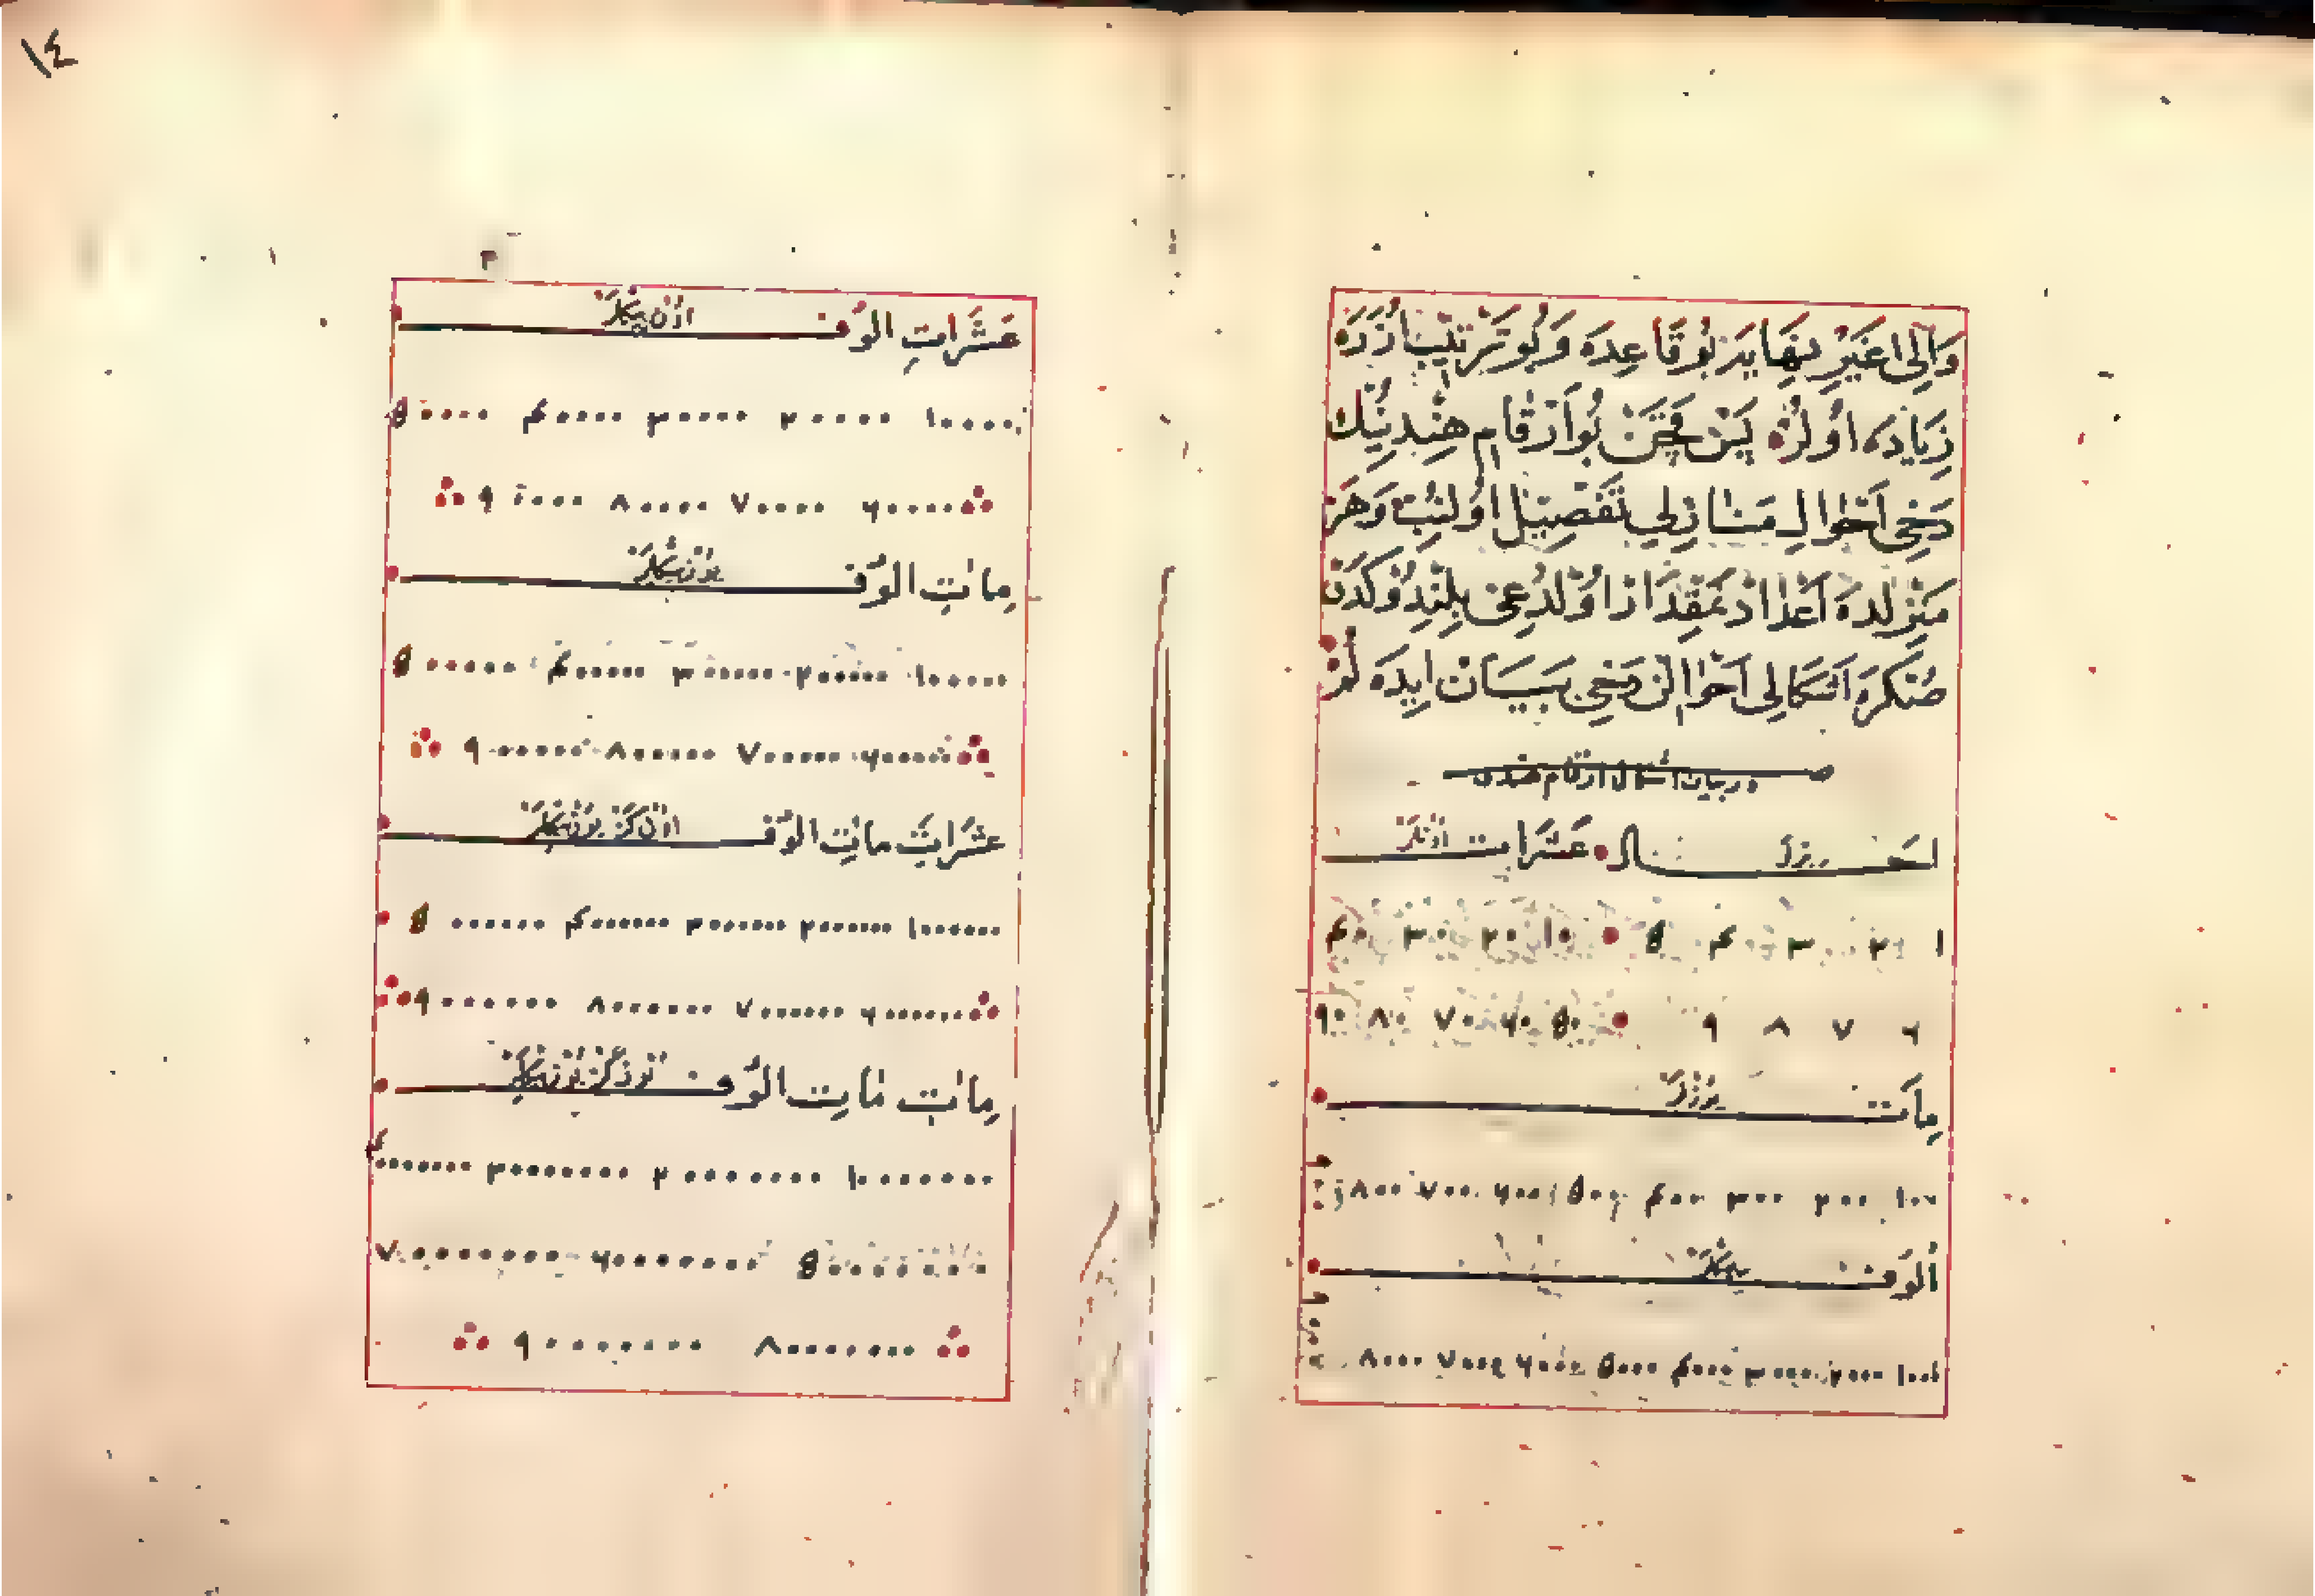 وَاِلٰى غَيْرِ نِهَايَه بُو قَاعِدَه وَبُو تَرْتِيبْ اُزَرَه
زِيَادَه اُولُرْ پَسْ چَنْ بُو اَرْقَامِ هِنْدِينِكْ
دَخِى اَحْوَالِ مَنَازِلِى تَفْصِيلْ اُولُنُبْ وَهَرْ
مَنْزِلَدَه اَعْدَادْ نَمِقْدَارْ اُولْدُغِى بِلِنْدُوكَدَنْ
صُكْرَه اَشْكَالِى اَحْوَالِنْ دَخِى بَيَانْ اِيدَه لُوْز
در بيان اشكال ارقام هندى
احـ بزلر ـاد عَشَرَات اونلر
١ ٢ ٣ ٤ 8 ١٠ ٢٠ ٣٠ ٤٠
٦ ٧ ٨ ٩ 8٠ ٦٠ ٧٠ ٨٠ ٩٠
مِآت يوزلر
١٠٠ ٢٠٠ ٣٠٠ ٤٠٠ 8٠٠ ٦٠٠ ٧٠٠ ٨٠٠
اُلُوف بيكلر
١٠٠٠ ٢٠٠٠ ٣٠٠٠ ٤٠٠٠ 8٠٠٠ ٦٠٠٠ ٧٠٠٠ ٨٠٠٠
١٤
عَشَرَاتِ الُوف اون بيكلر
١٠٠٠٠ ٢٠٠٠٠ ٣٠٠٠٠ ٤٠٠٠٠ 8٠٠٠٠
٦٠٠٠٠ ٧٠٠٠٠ ٨٠٠٠٠ ٩٠٠٠٠
مِآتِ الُوف يوز بيكلر
١٠٠٠٠٠ ٢٠٠٠٠٠ ٣٠٠٠٠٠ ٤٠٠٠٠٠ 8٠٠٠٠٠
٦٠٠٠٠٠ ٧٠٠٠٠٠ ٨٠٠٠٠٠ ٩٠٠٠٠٠
عَشَرَاتِ مآتِ الُوف اون كز يوز بيكلر
١٠٠٠٠٠٠ ٢٠٠٠٠٠٠ ٣٠٠٠٠٠٠ ٤٠٠٠٠٠٠ 8٠٠٠٠٠٠
٦٠٠٠٠٠٠ ٧٠٠٠٠٠٠ ٨٠٠٠٠٠٠ ٩٠٠٠٠٠٠
مِآتِ مآتِ الُوف يوز كز يوز بيكلر
١٠٠٠٠٠٠٠ ٢٠٠٠٠٠٠٠ ٣٠٠٠٠٠٠٠ ٤٠٠٠٠٠٠٠
8٠٠٠٠٠٠٠ ٦٠٠٠٠٠٠٠ ٧٠٠٠٠٠٠٠
٨٠٠٠٠٠٠٠ ٩٠٠٠٠٠٠٠